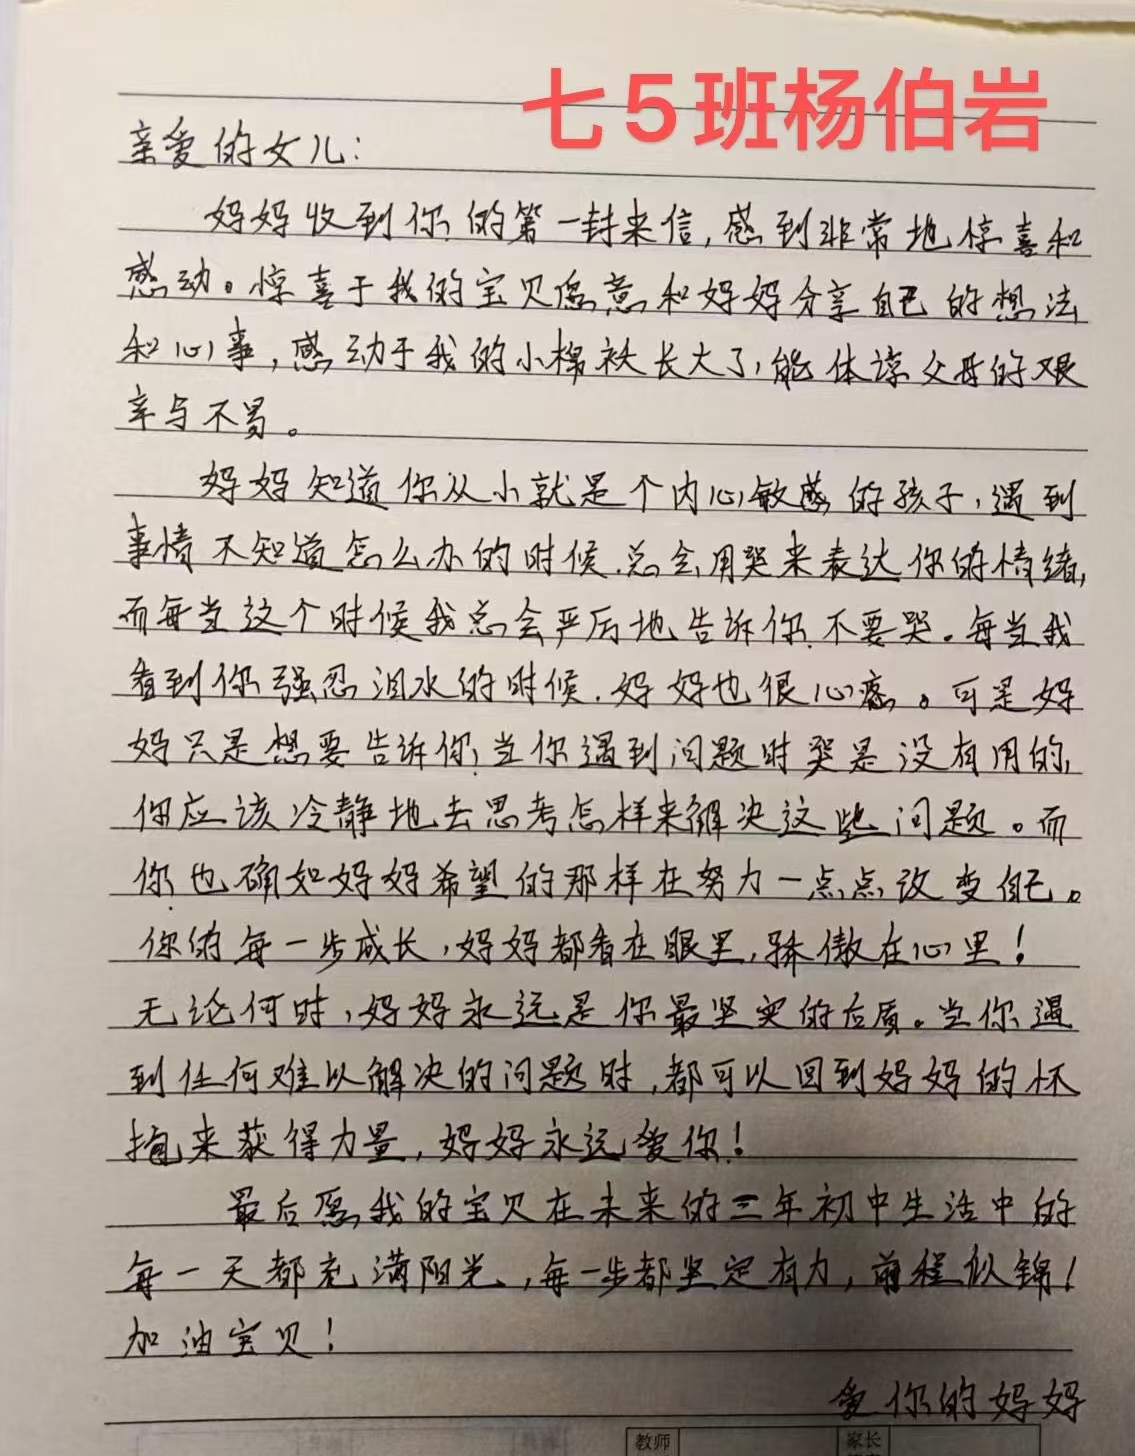 七5班杨伯岩
亲爱的女儿：
妈妈收到你的第一封来信，感到非常地惊喜和
感动。惊喜于我的宝贝愿意和妈妈分享自己的想法
和心事，感动于我的小棉袄长大了，能体谅父母的艰
辛与不易。
妈妈知道你从小就是个内心敏感的孩子，遇到
事情不知道怎么办的时候，总会用哭来表达你的情绪，
而每当这个时候我总会严厉地告诉你不要哭。每当我
看到你强忍泪水的时候，妈妈也很心疼。可是妈
妈只是想要告诉你，当你遇到问题时哭是没有用的，
你应该冷静地去思考怎样来解决这些问题。而
你也确如妈妈希望的那样在努力一点点改变自己。
你的每一步成长，妈妈都看在眼里，骄傲在心里！
无论何时，妈妈永远是你最坚实的后盾。当你遇
到任何难以解决的问题时，都可以回到妈妈的怀
抱来获得力量，妈妈永远爱你！
最后愿我的宝贝在未来的三年初中生活中的
每一天都充满阳光，每一步都坚定有力，前程似锦！
加油宝贝！
爱你的妈妈
教师
家长